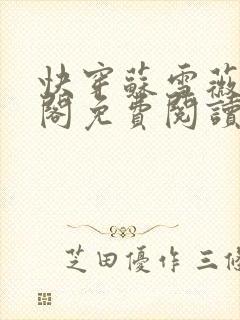 快穿蘇雪薇
閣免費閱讀
芝田優作 三修